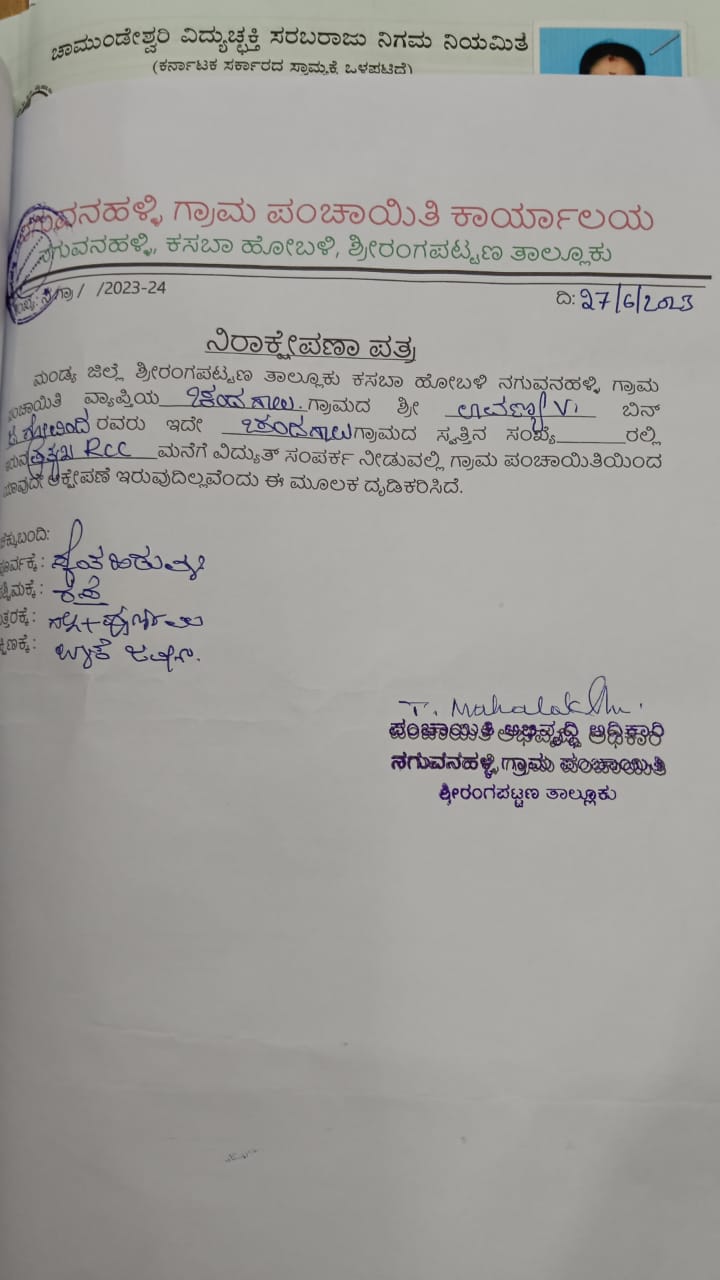 ಚಾಮುಂಡೇಶ್ವರಿ ವಿದ್ಯುಚ್ಛಕ್ತಿ ಸರಬರಾಜು ನಿಗಮ ನಿಯಮಿತ
(ಕರ್ನಾಟಕ ಸರ್ಕಾರದ ಸ್ವಾಮ್ಯಕ್ಕೆ ಒಳಪಟ್ಟಿದೆ)
ನಗುವನಹಳ್ಳಿ ಗ್ರಾಮ ಪಂಚಾಯಿತಿ ಕಾರ್ಯಾಲಯ
ನಗುವನಹಳ್ಳಿ, ಕಸಬಾ ಹೋಬಳಿ, ಶ್ರೀರಂಗಪಟ್ಟಣ ತಾಲ್ಲೂಕು
/ /2023-24
ದಿ: 27/6/2023
ನಿರಾಕ್ಷೇಪಣಾ ಪತ್ರ
ಮಂಡ್ಯ ಜಿಲ್ಲೆ ಶ್ರೀರಂಗಪಟ್ಟಣ ತಾಲ್ಲೂಕು ಕಸಬಾ ಹೋಬಳಿ ನಗುವನಹಳ್ಳಿ ಗ್ರಾಮ
ಪಂಚಾಯಿತಿ ವ್ಯಾಪ್ತಿಯ ಚಂದಗಾಲು ಗ್ರಾಮದ ಶ್ರೀ ಲಾವಣ್ಯ V. ಬಿನ್
ಗೋವಿಂದ ರವರು ಇದೇ ಚಂದಗಾಲು ಗ್ರಾಮದ ಸ್ವತ್ತಿನ ಸಂಖ್ಯೆ______ ರಲ್ಲಿ
ಇರುವ RCC ಮನೆಗೆ ವಿದ್ಯುತ್ ಸಂಪರ್ಕ ನೀಡುವಲ್ಲಿ ಗ್ರಾಮ ಪಂಚಾಯಿತಿಯಿಂದ
ಯಾವುದೇ ಆಕ್ಷೇಪಣೆ ಇರುವುದಿಲ್ಲವೆಂದು ಈ ಮೂಲಕ ದೃಡಿಕರಿಸಿದೆ.
ಚಕ್ಕುಬಂದಿ:
ಪೂರ್ವಕ್ಕೆ :
ಪಶ್ಚಿಮಕ್ಕೆ : ರಸ್ತೆ
ಉತ್ತರಕ್ಕೆ :
ದಕ್ಷಿಣಕ್ಕೆ :
T. Mahalakshmi
ಪಂಚಾಯಿತಿ ಅಭಿವೃದ್ಧಿ ಅಧಿಕಾರಿ
ನಗುವನಹಳ್ಳಿ ಗ್ರಾಮ ಪಂಚಾಯಿತಿ
ಶ್ರೀರಂಗಪಟ್ಟಣ ತಾಲ್ಲೂಕು